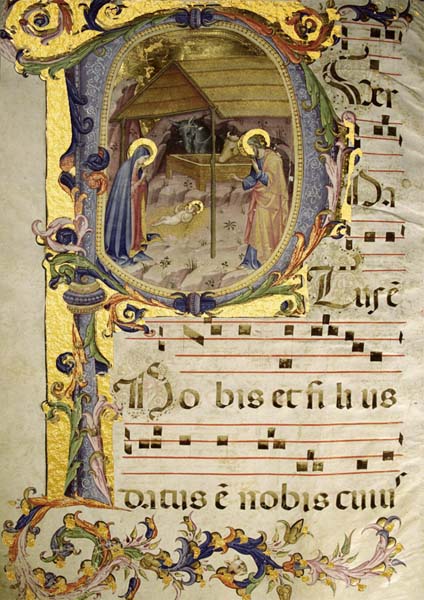 PUer
Na
tus ē
No bis et fi li us
datus ē nobis cuiu